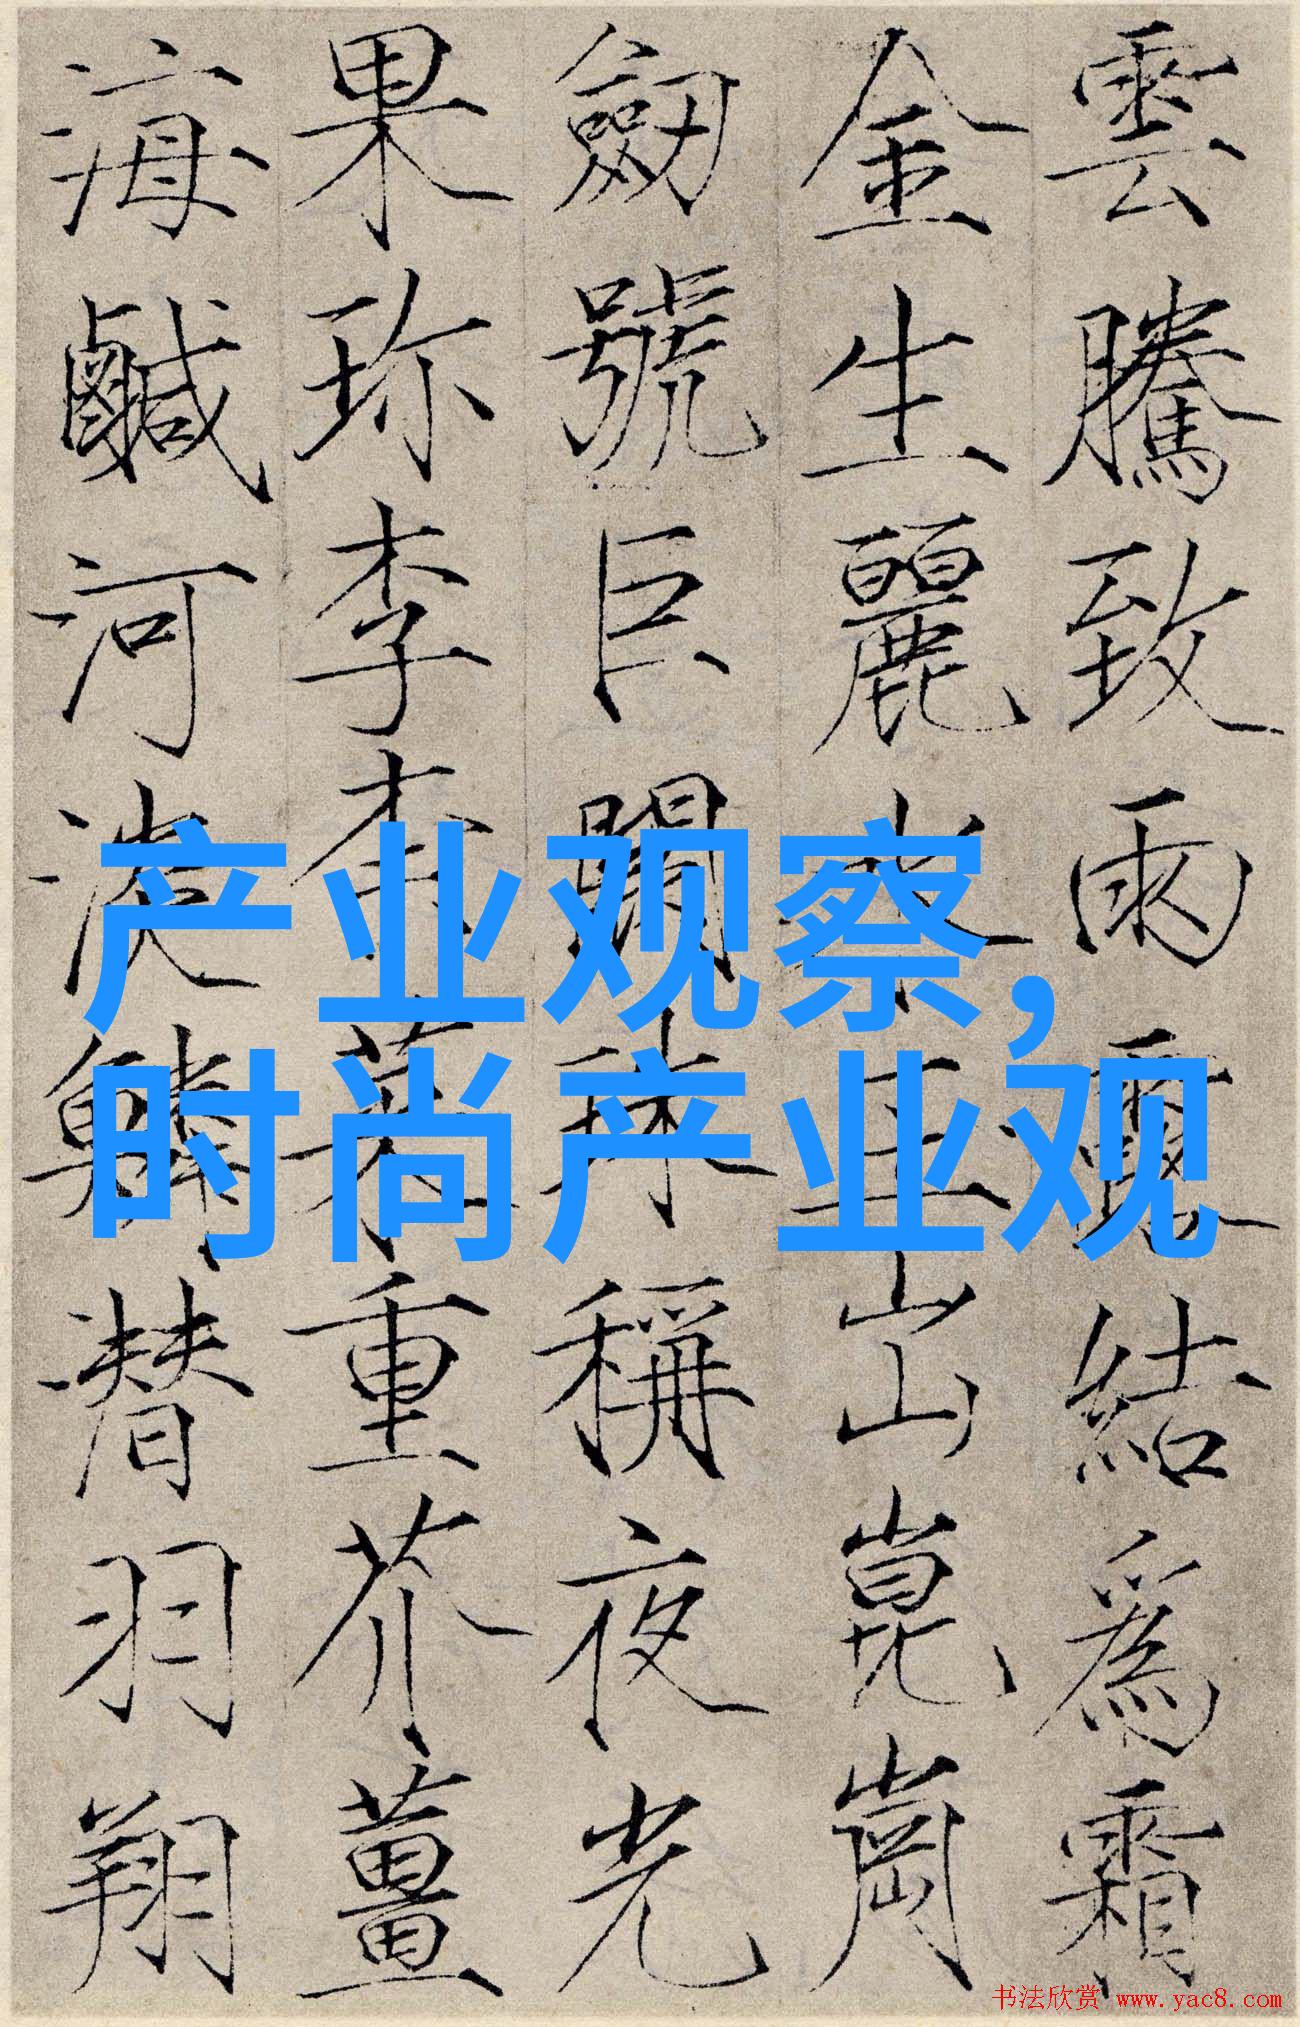 雲騰致雨露結爲霜
金生麗水玉出崑崗
劒號巨闕珠稱夜光
果珎李柰菜重芥薑
海鹹河淡鱗潜羽翔
产业观察,
时尚产业观
书法欣赏 www.yac8.com